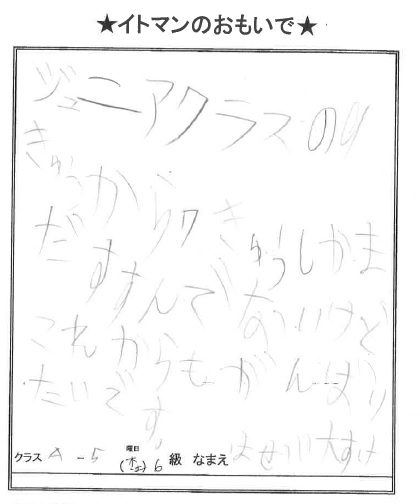 ★イトマンのおもいで★
ジュニアクラスの9
きゅうから7きゅうしかま
だすすんでないけど
これからもがんばり
たいです。
はせ川大すけ
クラス A-5 曜日(木土) 6級 なまえ